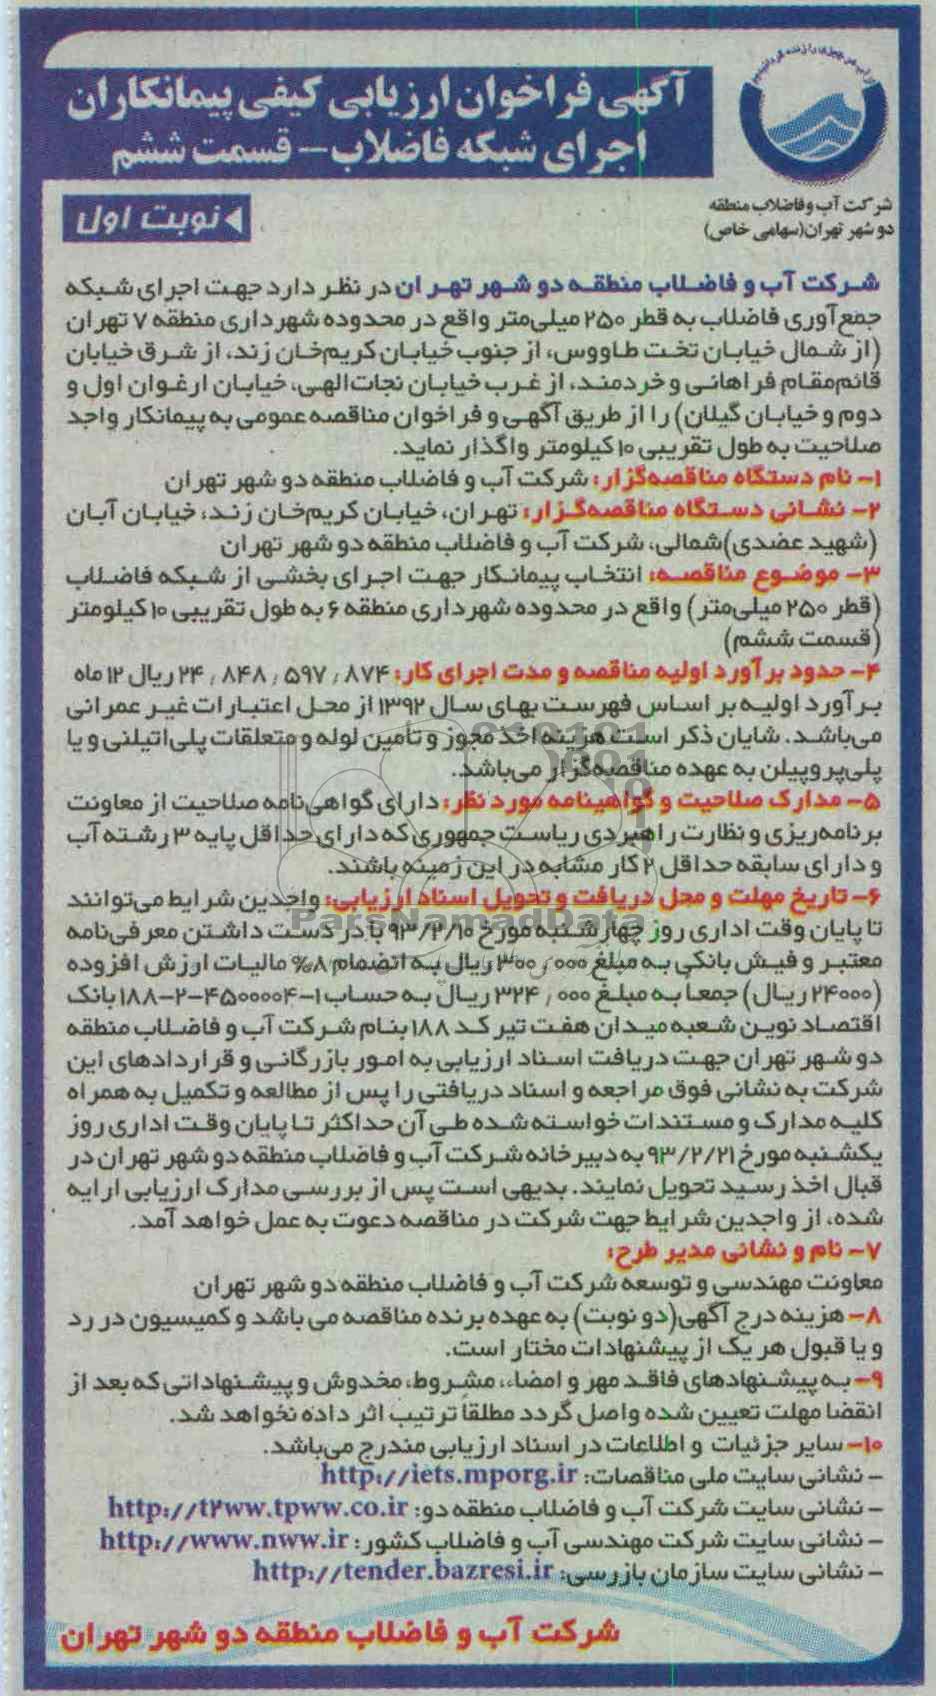 آگهی فراخوان ارزیابی کیفی پیمانکاران
اجرای شبکه فاضلاب – قسمت ششم
شرکت آب و فاضلاب منطقه
دو شهر تهران(سهامی خاص)
نوبت اول
شرکت آب و فاضلاب منطقه دو شهر تهران در نظر دارد جهت اجرای شبکه
جمع‌آوری فاضلاب به قطر ۲۵۰ میلی‌متر واقع در محدوده شهرداری منطقه ۷ تهران
(از شمال خیابان تخت طاووس، از جنوب خیابان کریم‌خان زند، از شرق خیابان
قائم‌مقام فراهانی و خردمند، از غرب خیابان نجات‌الهی، خیابان ارغوان اول و
دوم و خیابان گیلان) را از طریق آگهی و فراخوان مناقصه عمومی به پیمانکار واجد
صلاحیت به طول تقریبی ۱۰ کیلومتر واگذار نماید.
۱- نام دستگاه مناقصه‌گزار: شرکت آب و فاضلاب منطقه دو شهر تهران
۲- نشانی دستگاه مناقصه‌گزار: تهران، خیابان کریم‌خان زند، خیابان آبان
(شهید عضدی)شمالی، شرکت آب و فاضلاب منطقه دو شهر تهران
۳- موضوع مناقصه: انتخاب پیمانکار جهت اجرای بخشی از شبکه فاضلاب
(قطر ۲۵۰ میلی‌متر) واقع در محدوده شهرداری منطقه ۶ به طول تقریبی ۱۰ کیلومتر
(قسمت ششم)
۴- حدود برآورد اولیه مناقصه و مدت اجرای کار: ۲۴,۸۴۸,۵۹۷,۸۷۴ ریال ۱۲ ماه
برآورد اولیه بر اساس فهرست بهای سال ۱۳۹۲ از محل اعتبارات غیر عمرانی
می‌باشد. شایان ذکر است هزینه اخذ مجوز و تأمین لوله و متعلقات پلی‌اتیلنی و یا
پلی‌پروپیلن به عهده مناقصه‌گزار می‌باشد.
۵- مدارک صلاحیت و گواهینامه مورد نظر: دارای گواهی‌نامه صلاحیت از معاونت
برنامه‌ریزی و نظارت راهبردی ریاست جمهوری که دارای حداقل پایه ۳ رشته آب
و دارای سابقه حداقل ۲ کار مشابه در این زمینه باشند.
۶- تاریخ مهلت و محل دریافت و تحویل اسناد ارزیابی: واجدین شرایط می‌توانند
تا پایان وقت اداری روز چهارشنبه مورخ ۹۳/۲/۱۰ با در دست داشتن معرفی‌نامه
معتبر و فیش بانکی به مبلغ ۳۰۰,۰۰۰ ریال به انضمام ۸% مالیات ارزش افزوده
(۲۴۰۰۰ ریال) جمعاً به مبلغ ۳۲۴,۰۰۰ ریال به حساب ۱-۴۵۰۰۰۰۴-۲-۱۸۸ بانک
اقتصاد نوین شعبه میدان هفت تیر کد ۱۸۸ بنام شرکت آب و فاضلاب منطقه
دو شهر تهران جهت دریافت اسناد ارزیابی به امور بازرگانی و قراردادهای این
شرکت به نشانی فوق مراجعه و اسناد دریافتی را پس از مطالعه و تکمیل به همراه
کلیه مدارک و مستندات خواسته شده طی آن حداکثر تا پایان وقت اداری روز
یکشنبه مورخ ۹۳/۲/۲۱ به دبیرخانه شرکت آب و فاضلاب منطقه دو شهر تهران در
قبال اخذ رسید تحویل نمایند. بدیهی است پس از بررسی مدارک ارزیابی ارایه
شده، از واجدین شرایط جهت شرکت در مناقصه دعوت به عمل خواهد آمد.
۷- نام و نشانی مدیر طرح:
معاونت مهندسی و توسعه شرکت آب و فاضلاب منطقه دو شهر تهران
۸- هزینه درج آگهی(دو نوبت) به عهده برنده مناقصه می باشد و کمیسیون در رد
و یا قبول هر یک از پیشنهادات مختار است.
۹- به پیشنهادهای فاقد مهر و امضاء، مشروط، مخدوش و پیشنهاداتی که بعد از
انقضا مهلت تعیین شده واصل گردد مطلقاً ترتیب اثر داده نخواهد شد.
۱۰- سایر جزئیات و اطلاعات در اسناد ارزیابی مندرج می‌باشد.
- نشانی سایت ملی مناقصات: http://iets.mporg.ir
- نشانی سایت شرکت آب و فاضلاب منطقه دو: http://t۲ww.tpww.co.ir
- نشانی سایت شرکت مهندسی آب و فاضلاب کشور: http://www.nww.ir
- نشانی سایت سازمان بازرسی: http://tender.bazresi.ir
شرکت آب و فاضلاب منطقه دو شهر تهران
ParsNamadData